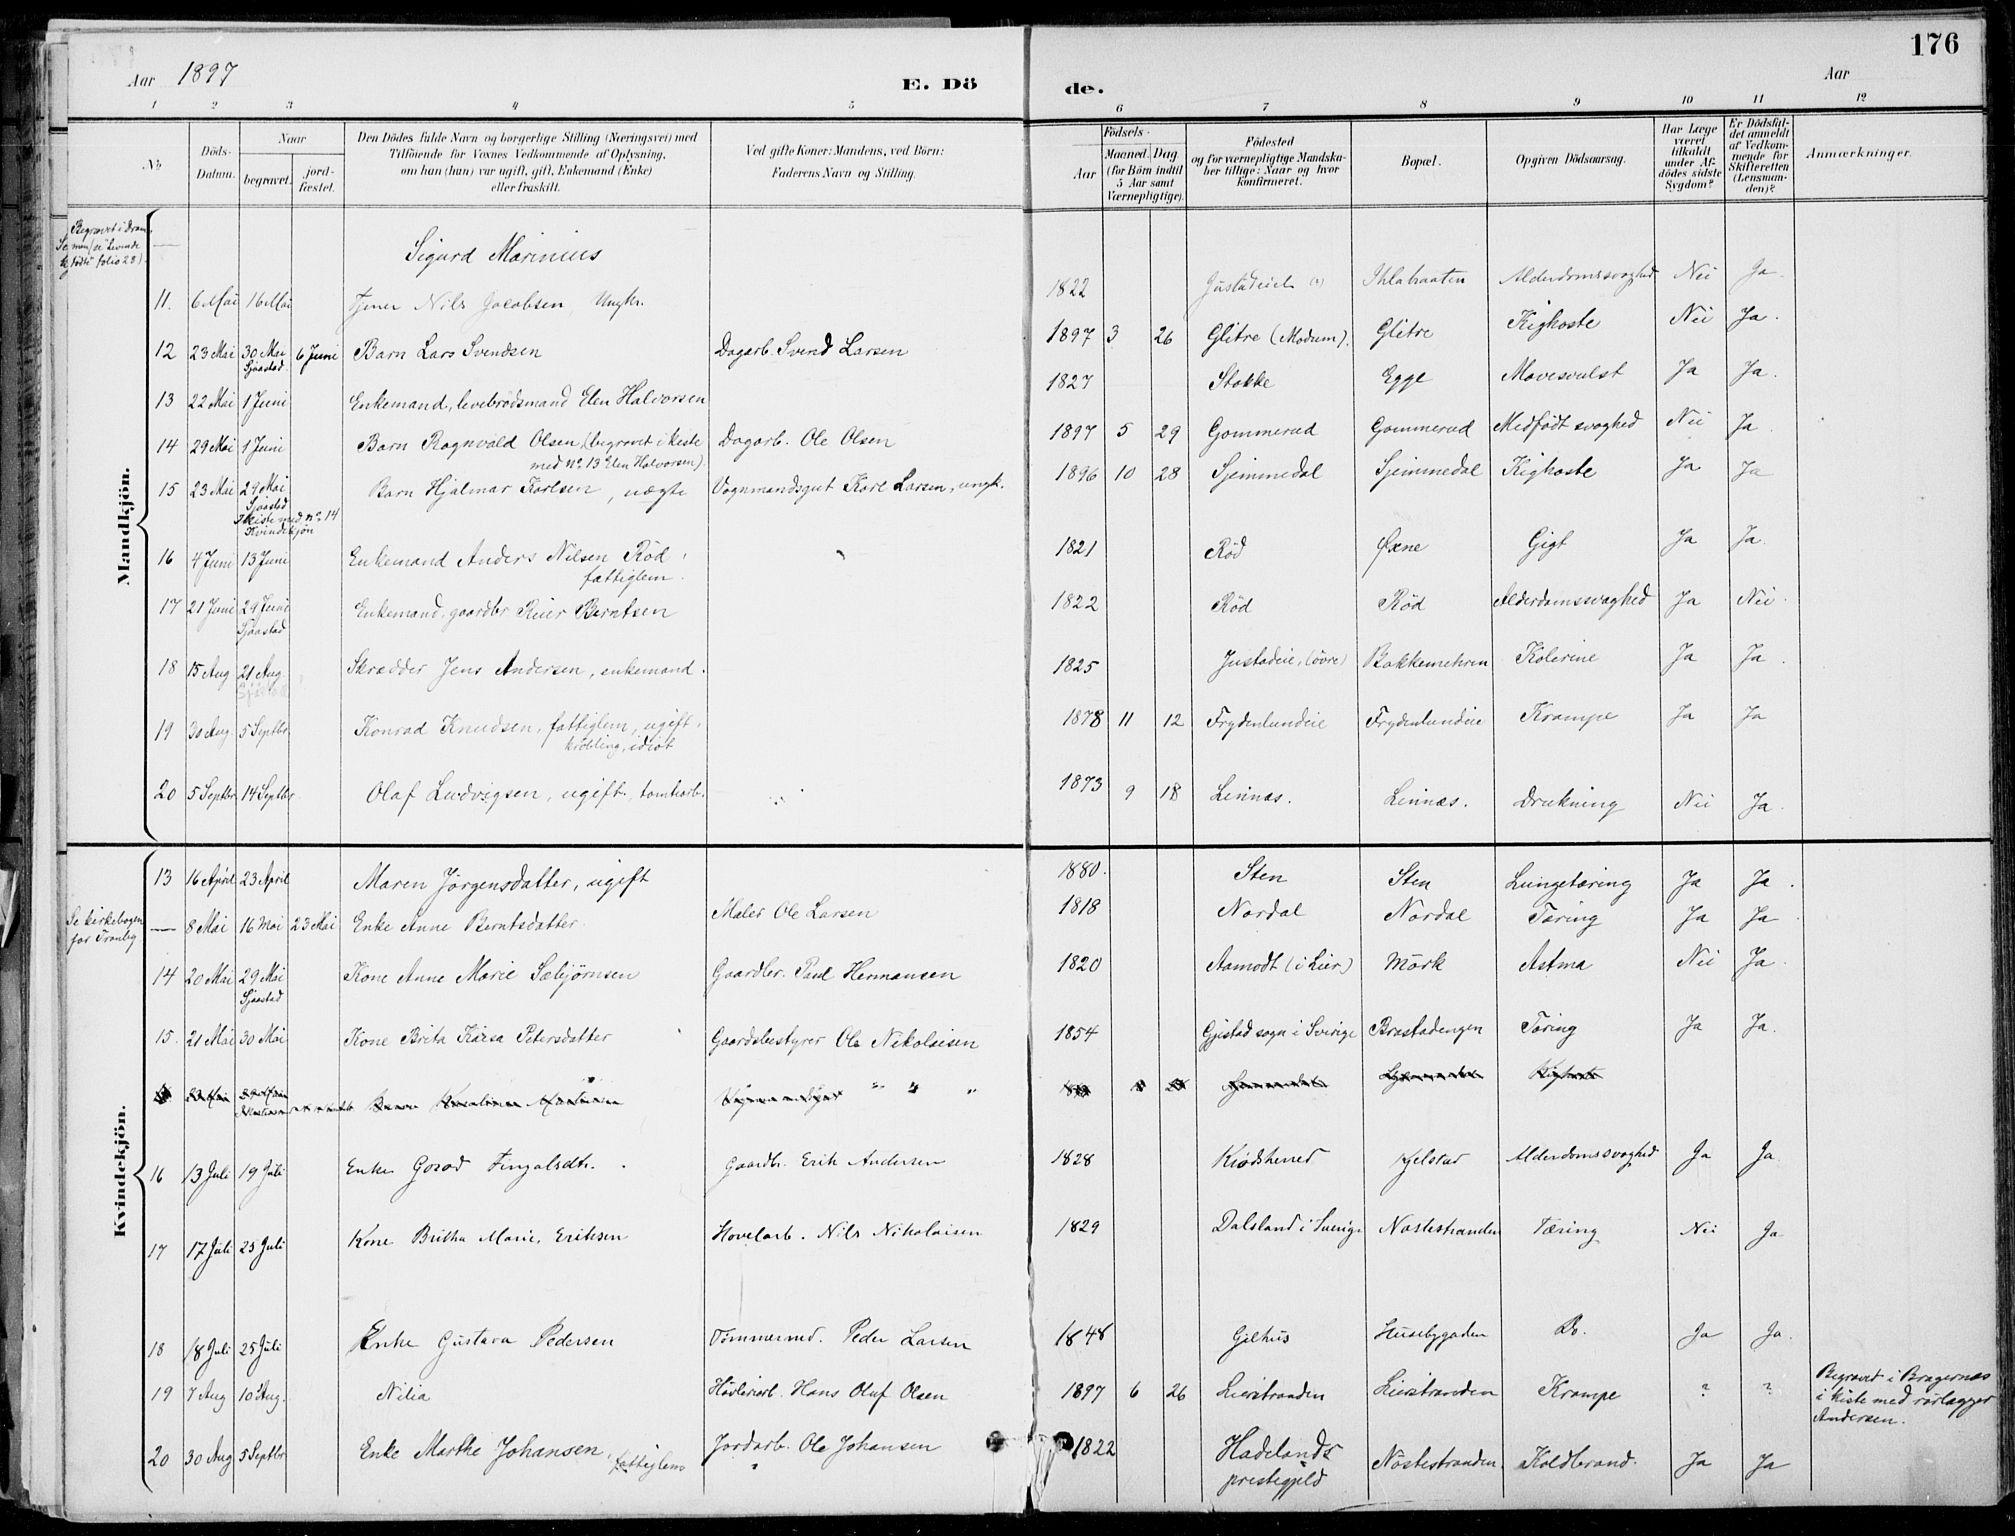 176
Aar 1897
E. Dö
de.
Aar
1 2 3 4 5 6 7 8 9 10 11 12
No
Döds-
Datum.
Naar
begravet.
jord-
fæstet.
Den Dödes fulde Navn og borgerlige Stilling (Næringsvei) med
Tilföiende for Voxnes Vedkommende af Oplysning,
om han (hun) var ugift, gift, Enkemand (Enke)
eller fraskilt.
Ved gifte Koner: Mandens, ved Börn:
Faderens Navn og Stilling.
Födsels-
Aar
Maaned. Dag
(for Börn indtil
5 Aar samt
Værnepligtige).
Födested
og for værnepligtige Mandska-
ber tillige: Naar og hvor
konfirmeret.
Bopæl.
Opgiven Dödsaarsag.
Har Læge
været
tilkaldt
under Af-
dödes sidste
Sygdom?
Er Dödsfal-
det anmeldt
af Vedkom-
mende for
Skifteretten
(Lensman-
den)?
Anmærkninger.
Mandkjön.
Begravet i Dram-
men (se "levende
fødte" folio 28).
— Sigurd Marinius
11. 6 Mai 16 Mai Tjener Nils Jacobsen, Ungkr. 1822 Ihlabraaten Alderdomssvaghed Nei Ja
12 23 Mai 30 Mai 6 Juni Barn Lars Svendsen Dagarb. Svend Larsen 1897 3 26 Glitre (Modum). Glitre Kighoste Nei Ja.
Sjaastad
13 22 Mai 1 Juni Enkemand, levebrødsmand Elen Halvorsen 1827 Stokke Egge Mavesvulst Ja Ja.
14 29 Mai 1 Juni Barn Ragnvald Olsen (begravet i kiste Dagarb. Ole Olsen 1897 5 29 Gommerud Gommerud Medfødt svaghed Nei Ja
med no. 13 Elen Halvorsen).
15 23 Mai 29 Mai Barn Hjalmar Karlsen, uægte Vognmandsgut Karl Larsen, ungk. 1896 10 28 Gjemmedal Gjemmedal Kighoste Ja Ja
Sjaastad
I kiste med no. 14
Kvindekjön
16 4 Juni 13 Juni Enkemand Anders Nilsen Rød, 1821 Rød Øxne Gigt Ja Ja.
fattiglem.
17 21 Juni 29 Juni Enkemand, gaardbr Reier Berntsen 1822 Rød Rød Alderdomssvaghed Ja Nei.
Sjaastad
18 15 Aug 21 Aug Skrædder Jens Andersen, enkemand. 1825 Justadeie, (øvre) Bakkemehren Kolerine Ja Ja.
Sjaastad
19 30 Aug 5 Septbr. Konrad Knudsen, fattiglem, ugift, 1878 11 12 Frydenlundeie Frydenlundeie Krampe Ja Ja
krøbling, idiot
20 5 Septbr. 14 Septbr. Olaf Ludvigsen, ugift, tomtearb. 1873 9 18 Linnæs. Linnæs. Drukning Nei Ja.
Kvindekjön.
13 16 April 23 April Maren Jørgensdatter, ugift 1880. Sten Sten Lungetæring Ja Ja.
Se kirkebogen
for Tranby
— 8 Mai 16 Mai 23 Mai Enke Anne Berntsdatter Maler Ole Larsen 1818 Nordal Nordal Tæring Ja Ja.
14 20 Mai 29 Mai Kone Anne Marie Sæbjørnsen Gaardbr. Paul Hermansen 1820 Aamodt (i Lier) Mörk Astma Nei Ja.
Sjaastad
15. 21 Mai 30 Mai Kone Brita Kaisa Petersdatter Gaardsbestyrer Ole Nikolaisen 1854 Gjestad sogn i Sverige Brastadengen Tæring Ja Ja.
16 13 Juli 19 Juli Enke Gorod Fingalsdtr. Gaardbr. Erik Andersen 1828 Krødsherred Kjelstad Alderdomssvaghed Ja Ja.
17 17 Juli 25 Juli Kone Britha Marie Eriksen Hovelarb. Nils Nikolaisen 1829 Dalsland i Sverige Nøstestranden Tæring Nei Ja
18 18 Juli 25 Juli Enke Gustava Pedersen Tømmermd. Peder Larsen 1848 Gilhus Husebygaden Do. Ja Ja.
19 7 Aug 10 Aug. Nilia Høvleriarb. Hans Oluf Olsen 1897 6 26 Lierstranden Lierstranden Krampe ? ? Begravet i Bragernæs
i kiste med rørlægger
Andersen.
20 30 Aug 5 Septbr Enke Marthe Johansen, fattiglem Jordarb. Ole Johansen 1822 Hadelands Nøstestranden. Koldbrand. Ja Ja
prestegjeld